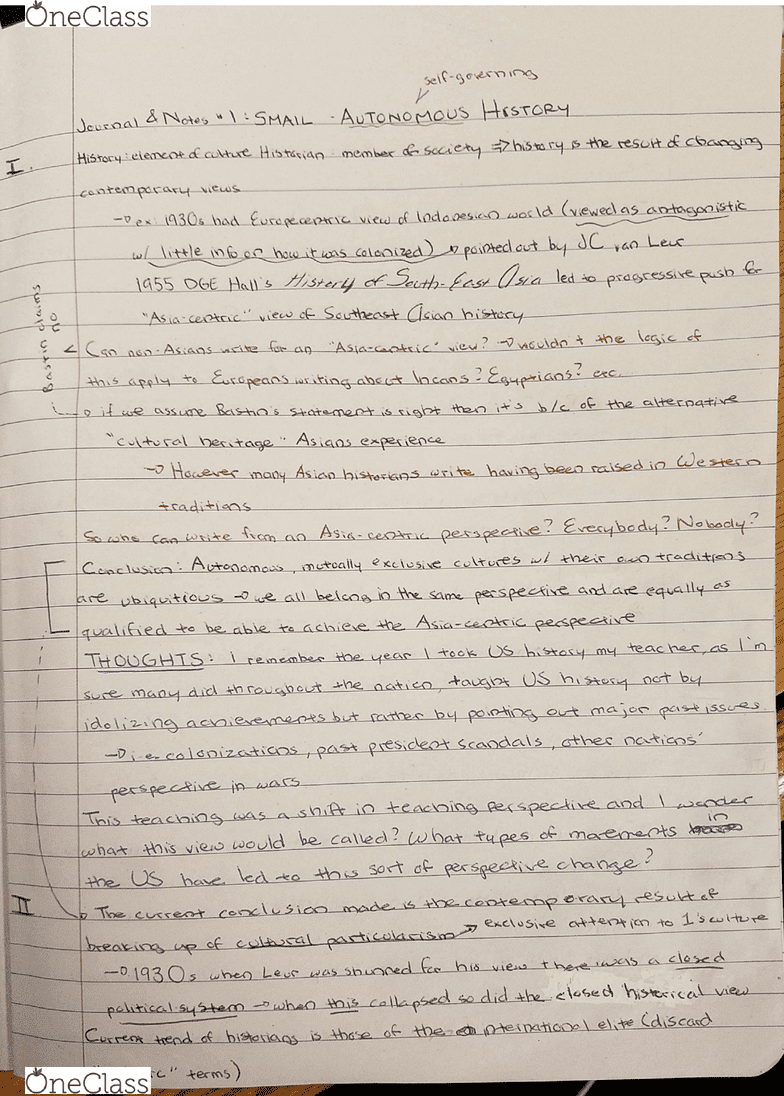 OneClass
self-governing
Journal & Notes #1: SMAIL - AUTONOMOUS HISTORY
I.
History: element of culture Historian: member of society => history is the result of changing
contemporary views
→ ex: 1930s had Europecentric view of Indonesian world (viewed as antagonistic
w/ little info on how it was colonized) → pointed out by JC van Leur
1955 DGE Hall's History of South-East Asia led to progressive push for
"Asia-centric" view of Southeast Asian history
Bastin claims
no
< Can non-Asians write for an "Asia-centric" view? → wouldn't the logic of
this apply to Europeans writing about Incans? Egyptians? etc.
→ if we assume Bastin's statement is right then it's b/c of the alternative
"cultural heritage" Asians experience
→ However many Asian historians write having been raised in Western
traditions
So who can write from an Asia-centric perspective? Everybody? Nobody?
Conclusion: Autonomous, mutually exclusive cultures w/ their own traditions
are ubiquitious → we all belong in the same perspective and are equally as
qualified to be able to achieve the Asia-centric perspective
THOUGHTS: I remember the year I took US history my teacher, as I'm
sure many did throughout the nation, taught US history not by
idolizing achievements but rather by pointing out major past issues
→ i.e. colonizations, past president scandals, other nations'
perspective in wars
This teaching was a shift in teaching perspective and I wonder
what this view would be called? What types of movements in
the US have led to this sort of perspective change?
II
→ The current conclusion made is the contemporary result of
breaking up of cultural particularism → exclusive attention to 1's culture
→ 1930s when Leur was shunned for his view there was a closed
political system → when this collapsed so did the closed historical view
Current trend of historians is those of the international elite (discard
c" terms)
OneClass